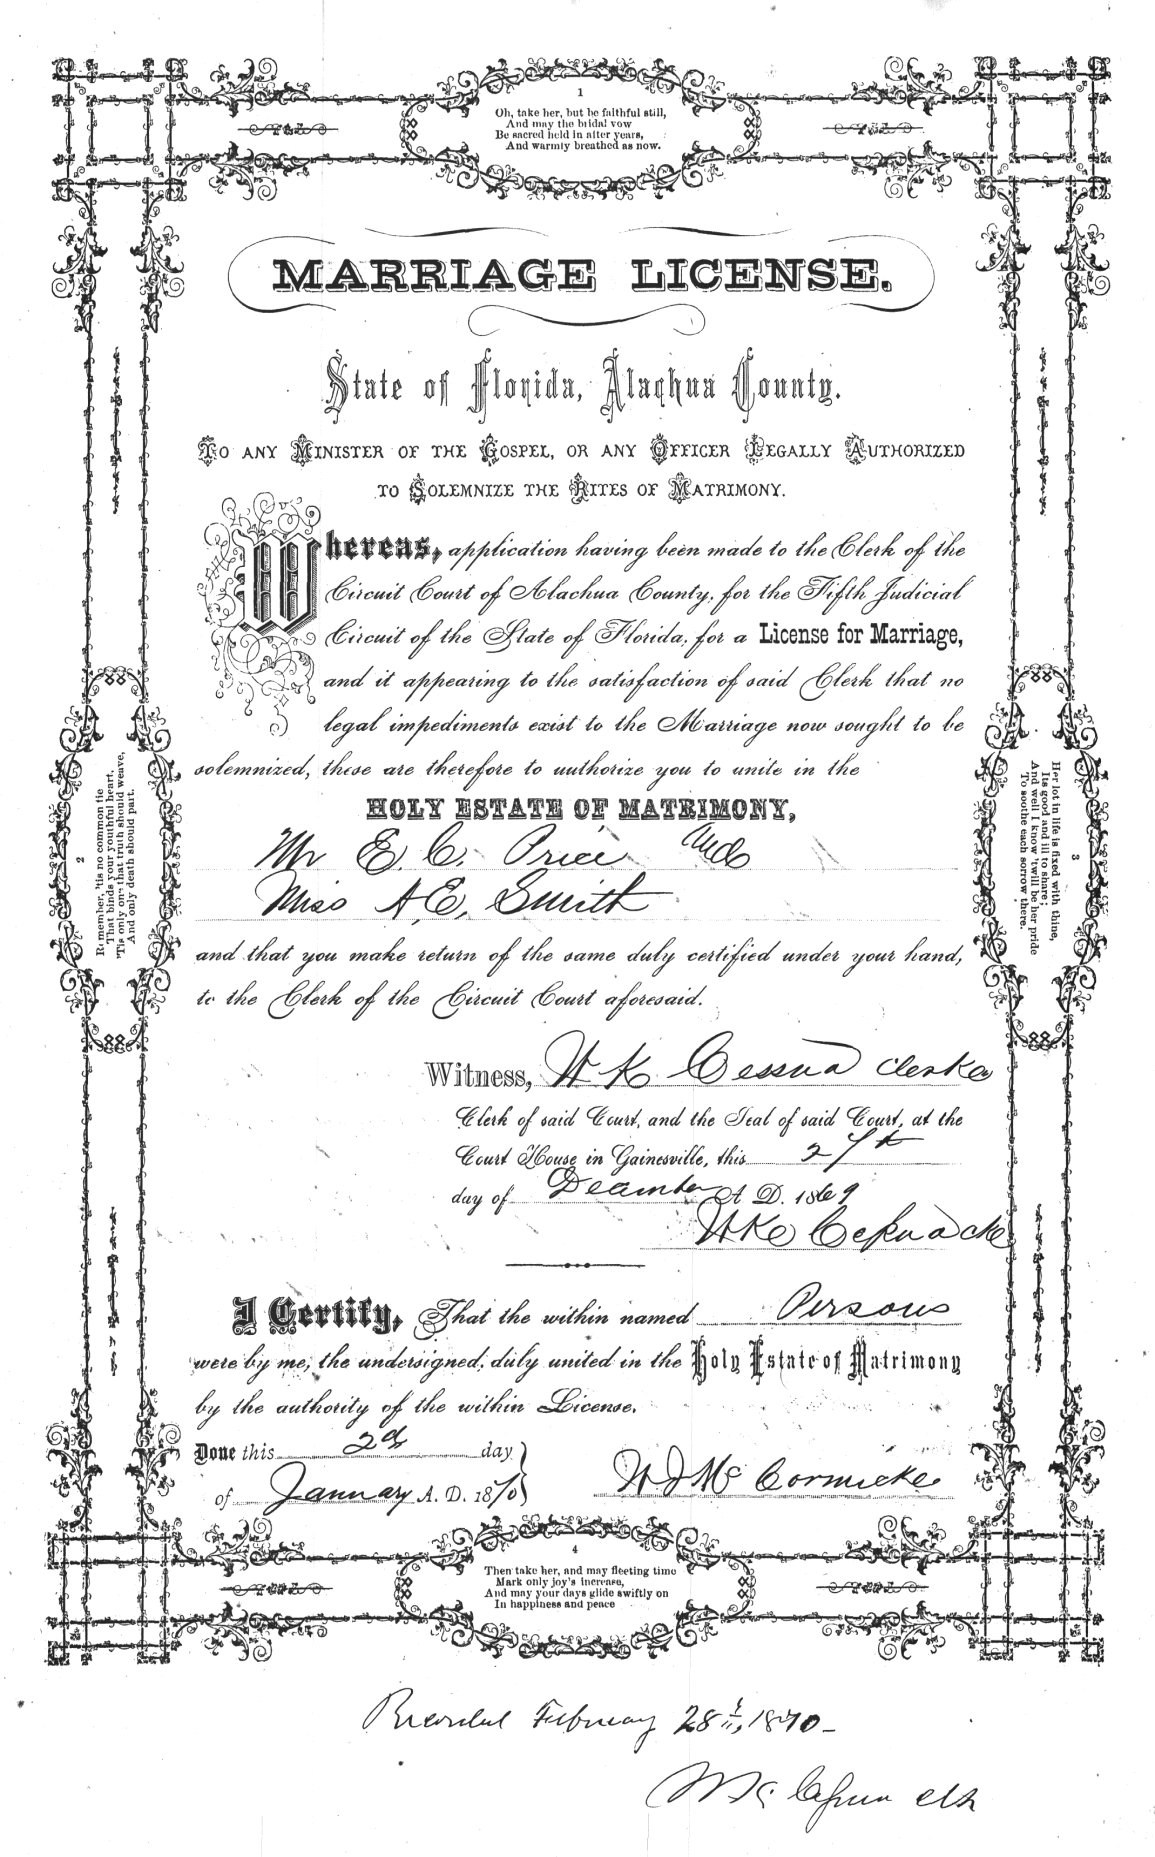 1
Oh, take her, but be faithful still,
And may the bridal vow
Be sacred held in after years,
And warmly breathed as now.
MARRIAGE LICENSE.
State of Florida, Alachua County.
TO ANY MINISTER OF THE GOSPEL, OR ANY OFFICER LEGALLY AUTHORIZED
TO SOLEMNIZE THE RITES OF MATRIMONY.
Whereas, application having been made to the Clerk of the
Circuit Court of Alachua County, for the Fifth Judicial
Circuit of the State of Florida, for a License for Marriage,
and it appearing to the satisfaction of said Clerk that no
legal impediments exist to the Marriage now sought to be
solemnized, these are therefore to authorize you to unite in the
HOLY ESTATE OF MATRIMONY,
Mr E. C. Price and
Miss A. E. Smith
and that you make return of the same duly certified under your hand,
to the Clerk of the Circuit Court aforesaid.
2
Remember, 'tis no common tie
That binds your youthful heart,
'Tis only on that truth should weave,
And only death should part.
3
Her lot in life is fixed with thine,
Its good and ill to share;
And well I know 'twill be her pride
To soothe each sorrow there.
Witness, W K Cessna Clerk
Clerk of said Court, and the Seal of said Court, at the
Court House in Gainesville, this 27th
day of December A. D. 1869
W K Cessna Clk
I Certify, That the within named Persons
were by me, the undersigned, duly united in the Holy Estate of Matrimony
by the authority of the within License.
Done this 2d day
of January A. D. 1870
W J McCormicke
4
Then take her, and may fleeting time
Mark only joy's increase,
And may your days glide swiftly on
In happiness and peace
Recorded February 28th, 1870-
W K Cessna Clk